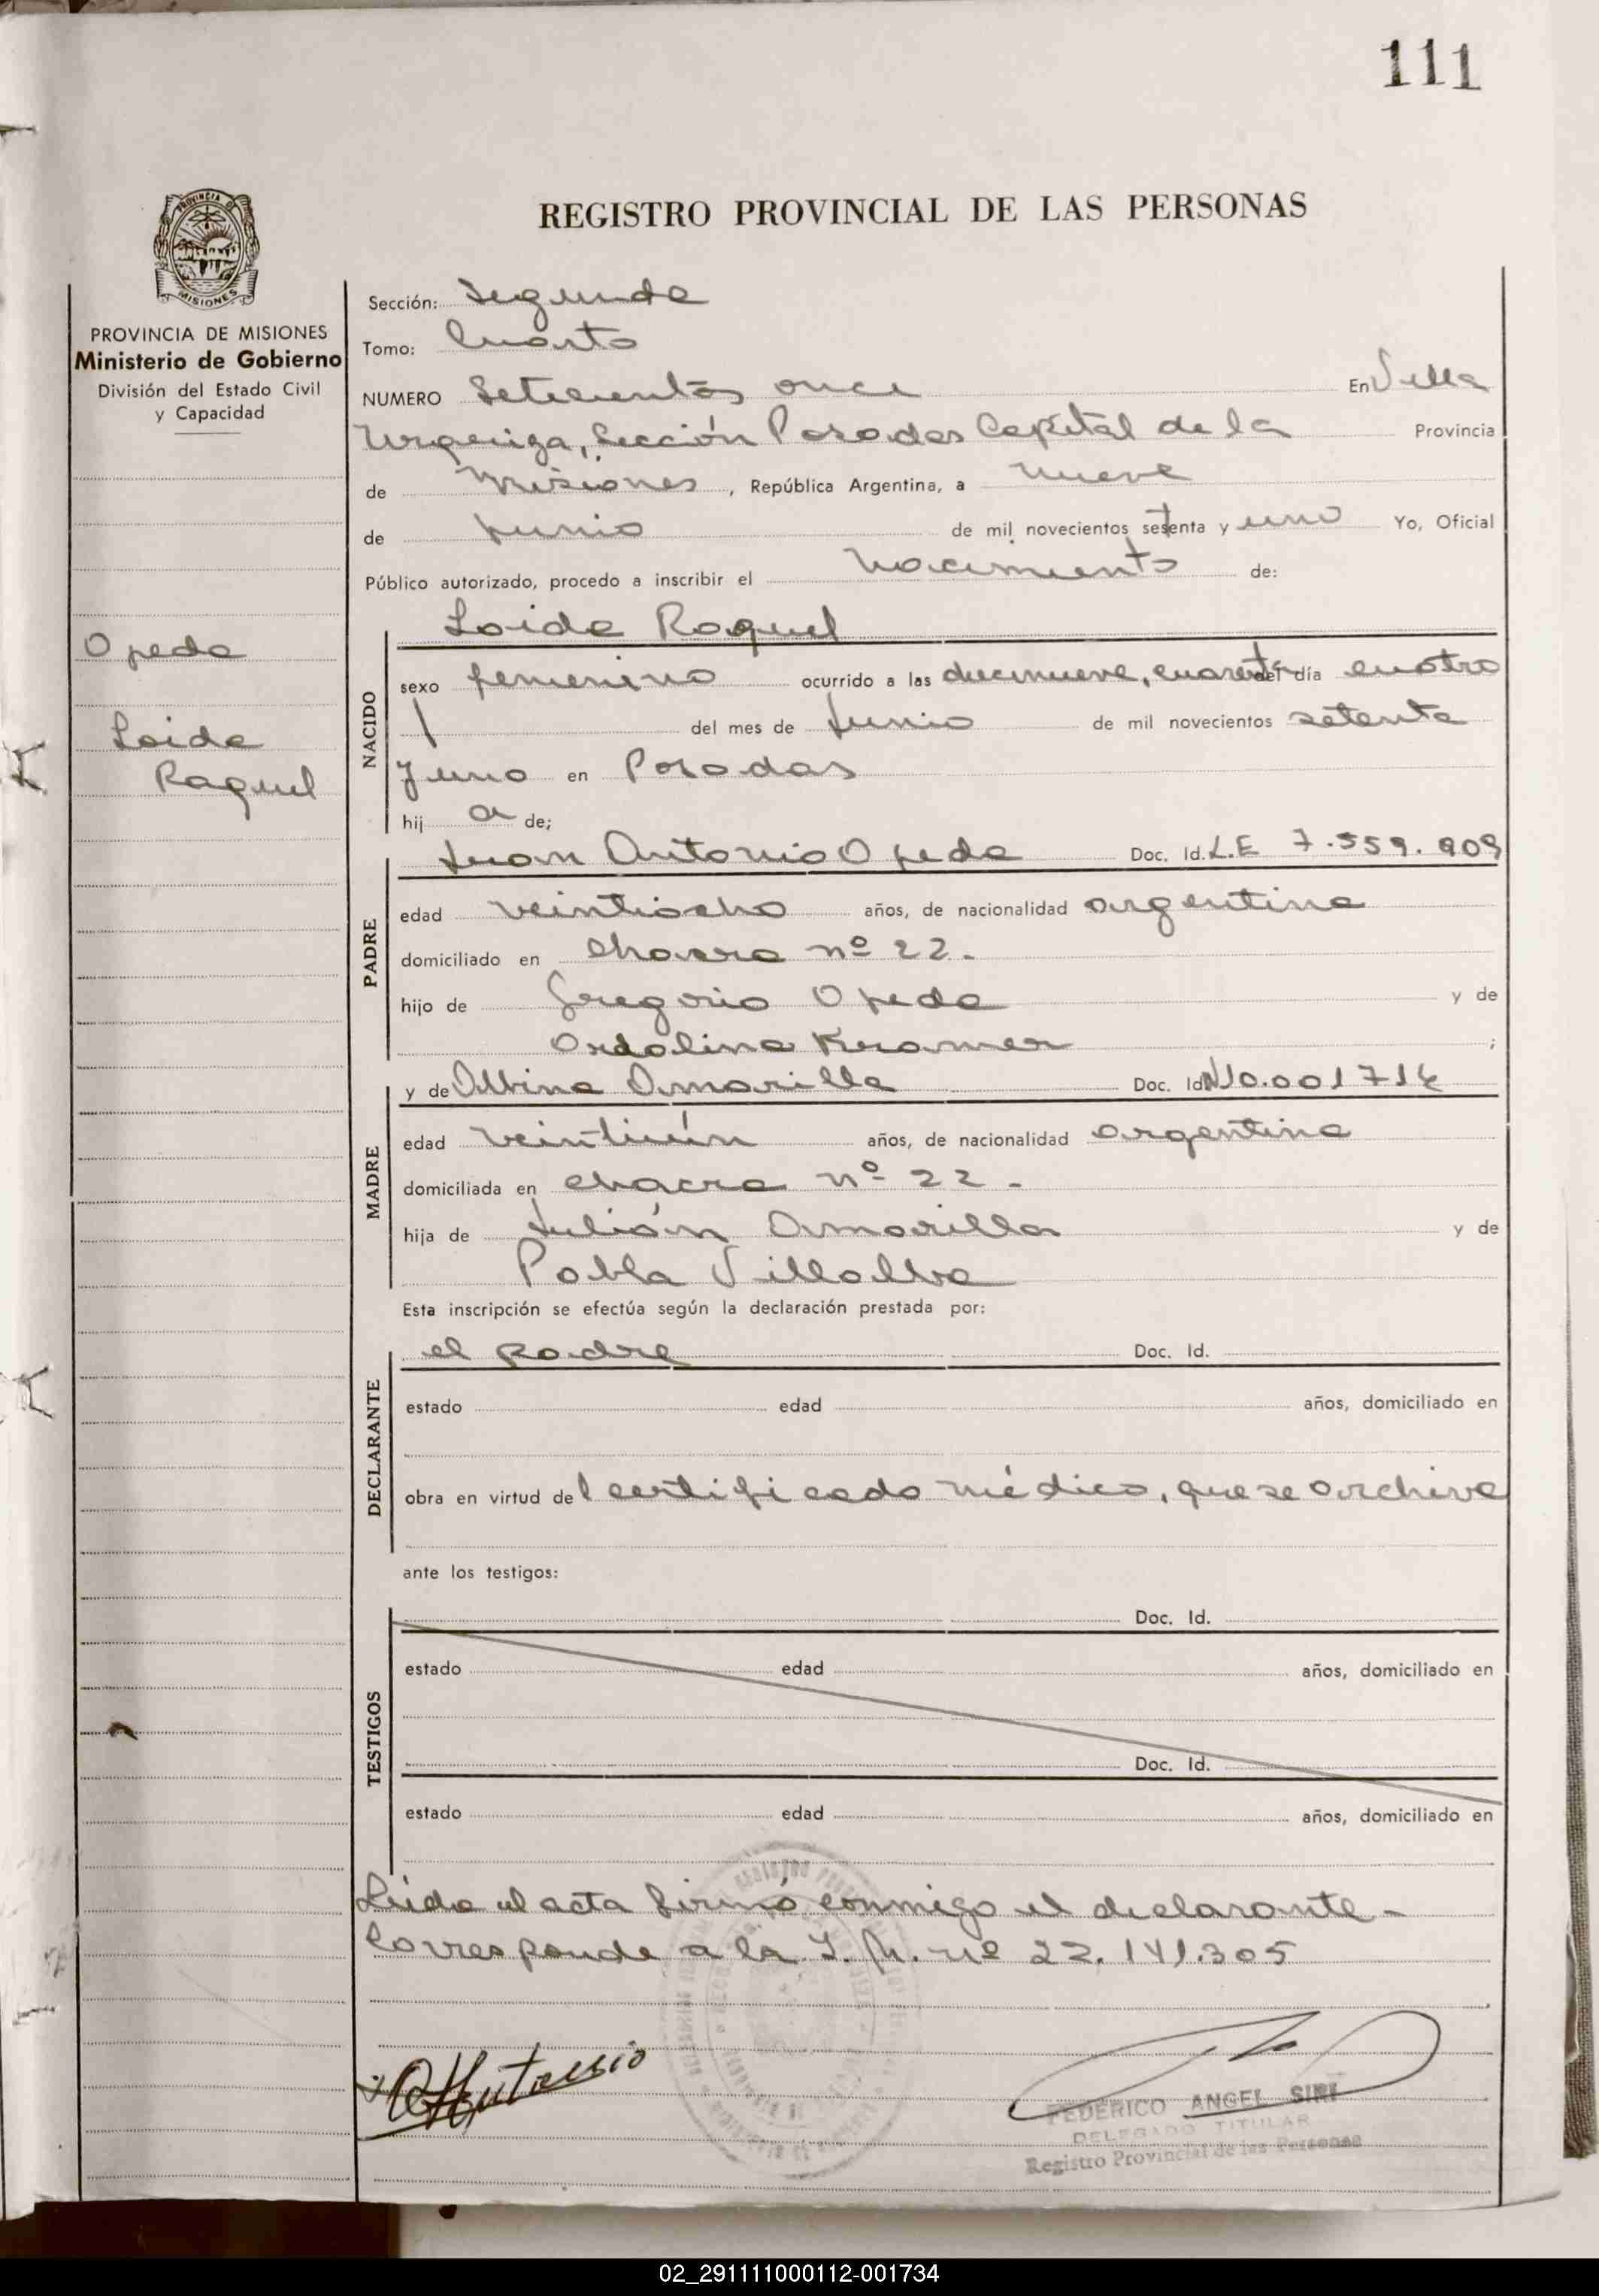 111
REGISTRO PROVINCIAL DE LAS PERSONAS
PROVINCIA DE MISIONES
Ministerio de Gobierno
División del Estado Civil
y Capacidad
Opeda
Loida
Raquel
Sección: Segunda
Tomo: Cuarto
NUMERO Setecientos once En Villa
Urquiza, Sección Posadas Capital de la Provincia
de Misiones, República Argentina, a nueve
de Junio de mil novecientos setenta y uno Yo, Oficial
Público autorizado, procedo a inscribir el nacimiento de:
Loida Raquel
NACIDO
sexo femenino ocurrido a las diecinueve, cuarenta del día cuatro
del mes de Junio de mil novecientos setenta
y uno en Posadas
hij a de;
Juan Antonio Opeda Doc. Id. L.E 7.559.909
PADRE
edad veintiocho años, de nacionalidad argentina
domiciliado en chacra nº 22.
hijo de Gregorio Opeda y de
Ordolina Kramer ;
y de Albina Amarilla Doc. Id. 10.001714
MADRE
edad veintiún años, de nacionalidad argentina
domiciliada en chacra nº 22 -
hija de Julián Amarilla y de
Pabla Villalba
Esta inscripción se efectúa según la declaración prestada por:
el padre Doc. Id.
DECLARANTE
estado edad años, domiciliado en
obra en virtud del certificado médico, que se archiva
ante los testigos:
Doc. Id.
TESTIGOS
estado edad años, domiciliado en
Doc. Id.
estado edad años, domiciliado en
Leída el acta firmó conmigo el declarante -
Corresponde a la I. M. nº 22.141.305
FEDERICO ANGEL SIRI
DELEGADO TITULAR
Registro Provincial de las Personas
02_291111000112-001734